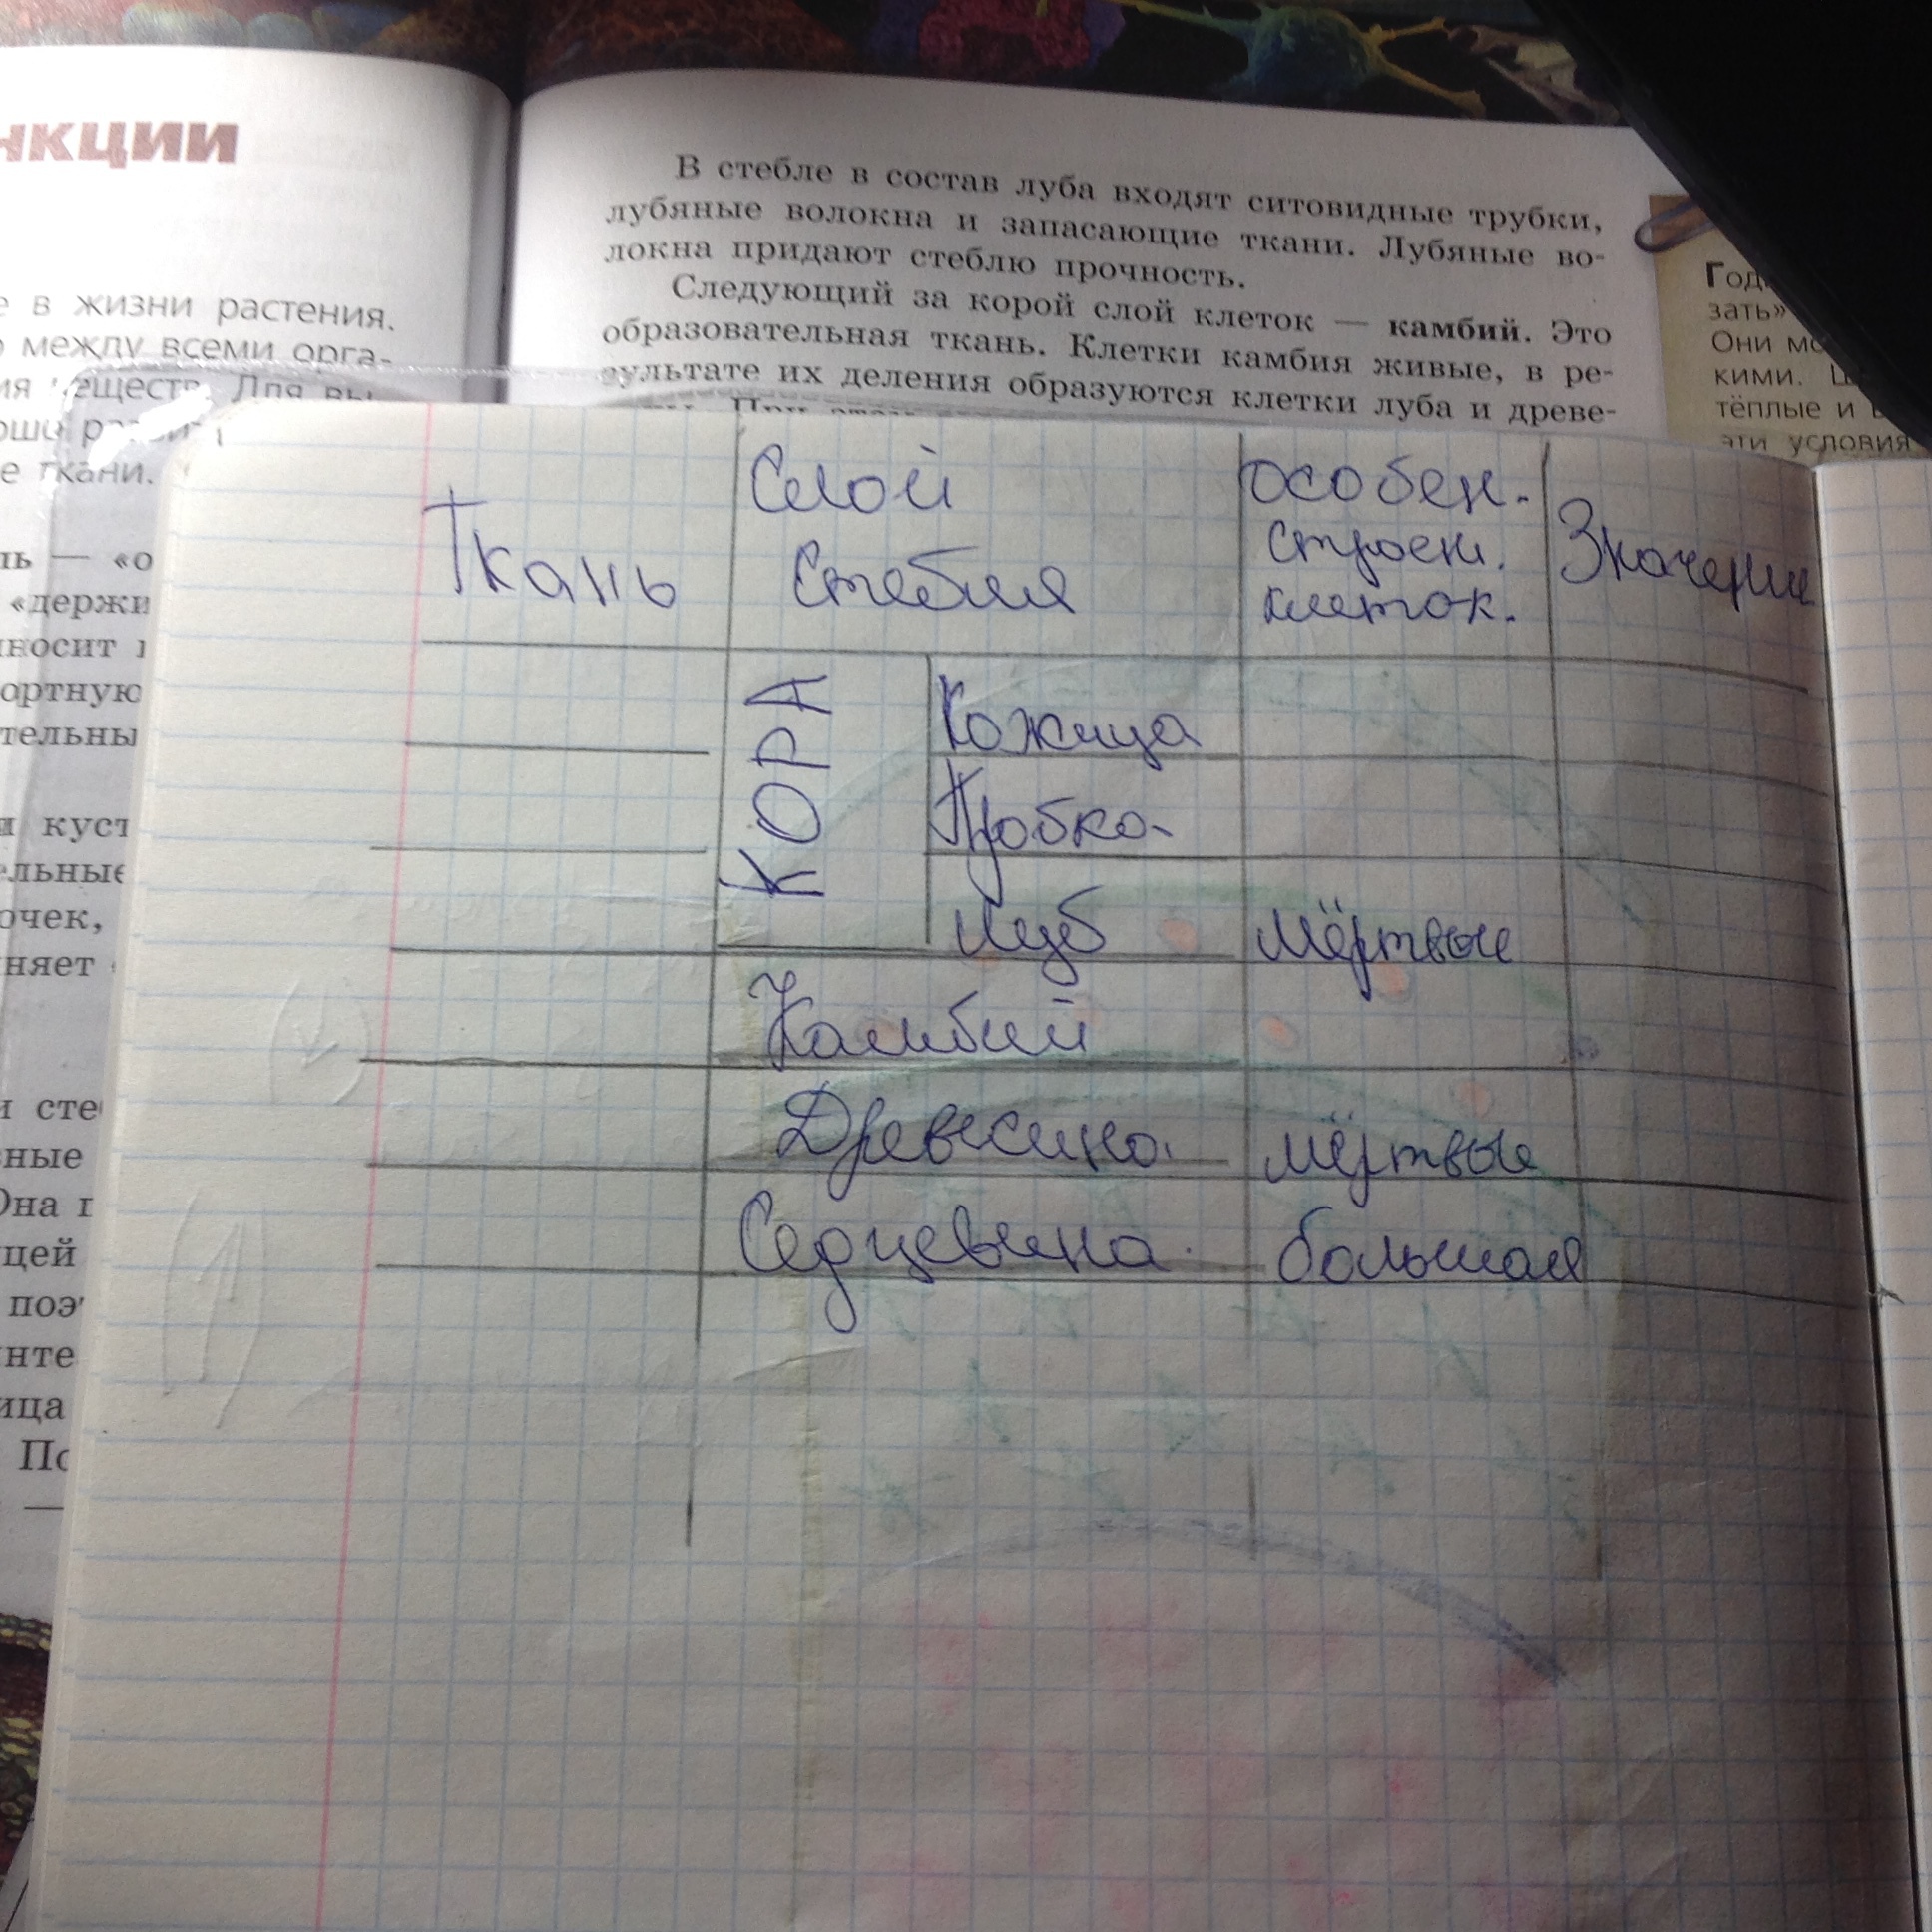 нкции
е в жизни растения.
между всеми орга-
ия веществ. Для вы-
е ткани.
ль — «о
«держи
носит
ортную
тельны
и куст
ельные
очек,
няет
и сте
ные
Она п
щей
поэ
нте
ица
По
—
В стебле в состав луба входят ситовидные трубки,
лубяные волокна и запасающие ткани. Лубяные во-
локна придают стеблю прочность.
Следующий за корой слой клеток — камбий. Это
образовательная ткань. Клетки камбия живые, в ре-
зультате их деления образуются клетки луба и древе-
Год
зать»
Они мо
кими.
тёплые и
эти условия
Ткань
Слой
Стебля
особен.
строен.
клеток.
Значение
КОРА
Кожица
Пробка
Луб мёртвые
Камбий
Древесина мёртвые
Седцевина большая